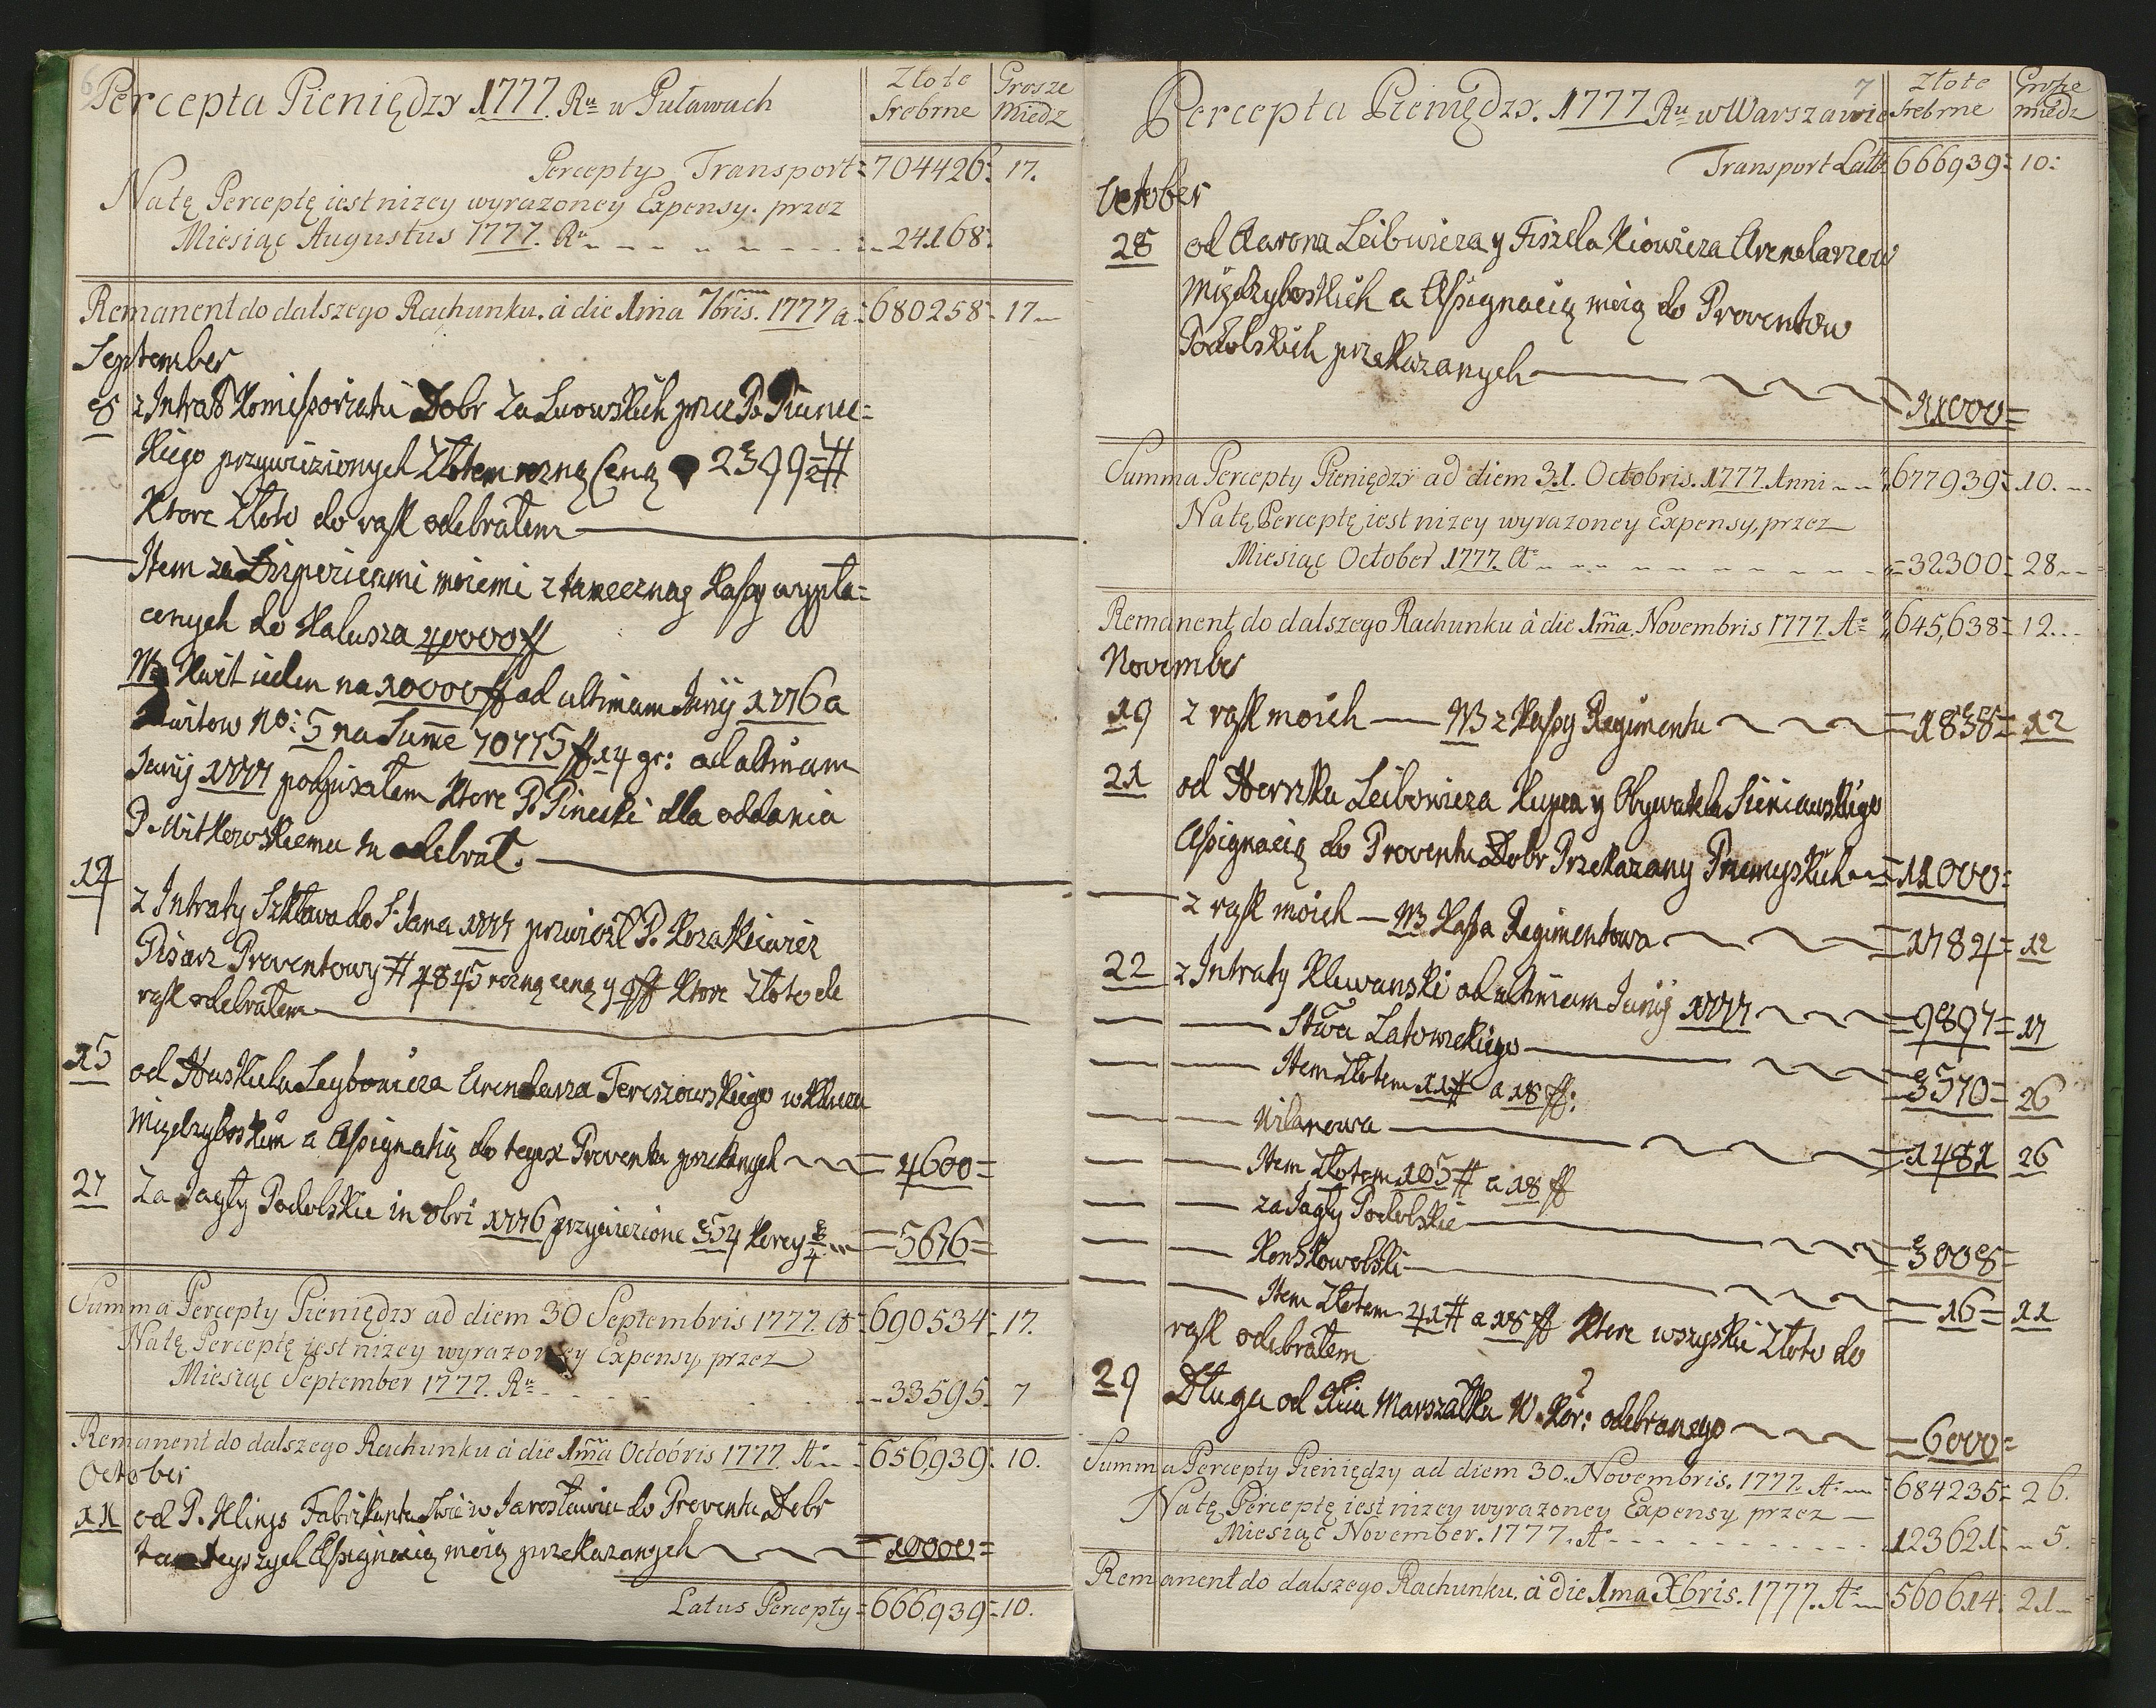 6
Percepta Pieniędzy 1777. Ru w Puławach Złote Grosze
srebrne Miedz
Percepty Transport 704426: 17.
Na tę Perceptę iest nizey wyrazoney Expensy. przez
Miesiąc Augustus 1777. Ru 24168.
Remanent do dalszego Rachunku. à die 1ma 7bris. 1777 a 680258 17
September
8 z Intrat Komissoriatu Dobr Za Lwowskich przez P.
kiego przywiezionych Złotem rozną Ceną 2399 #
Ktore Złoto do rąk odebrałem
Item za moiemi z tameczney Kassy wypła=
conych do Kalusza 40000 ff
NB Kwit ieden na 10000 ff ad ultimam Junij 1776 a
Kwitow No: 5 na Summę 70775 ff 14 gr: ad ultimam
Junij 1777 podpisałem Ktore P. Pineski dla oddania
P. Mitkowskiemu tu odebrał.
14 z Intraty Szkława do S. Jana 1777 przywiozł P. Kozakiewicz
Pisarz Proventowy # 4845 rozną ceną y 4 ff Ktore Złoto do
rąk odebrałem
15 od Leybowicza Arendarza Tereszowskiego w Kluczu
Międzyboskim a Assignatią do tegoz Proventu =4600=
27 Za Jagły Podolskie in 8bri 1776 przywiezione 354 Korcy 3/4 =5676=
Summa Percepty Pieniędzy ad diem 30 Septembris 1777. A 690534 17.
Na tę Perceptę iest nizey wyrazoney Expensy, przez
Miesiąc September 1777. Ru 33595 7
Remanent do dalszego Rachunku à die 1ma Octobris 1777. Ao 656,939: 10.
October
11 od P. Klings Fabrikanta w Jarosławiu do Proventu Dobr
tamteyszych Assignacią moią przekazanych =10000=
Latus Percepty =666,939=10.
7
Percepta Pieniędzy. 1777 Ru w Warszawie Złote Grosze
srebrne miedz
Transport Latus 666939: 10:
October
28 od Aarona Leibowicza y Fiszela Arendarzow
Międzyboskich a Assignacią moią do Proventow
Podolskich przekazanych 11000=
Summa Percepty Pieniędzy ad diem 31. Octobris. 1777. Anni 677939 10.
Na tę Perceptę iest nizey wyrazoney Expensy, przez
Miesiąc October 1777. A 32300 28
Remanent do dalszego Rachunku à die 1ma Novembris 1777. Ao 645,638= 12
November
19 z rąk moich NB z Kassy Regimentu =1838= 12
21 od Herszka Leibowicza Kupca y Obywatela Sieniawskiego
Assignacią do Proventu Dobr Przekazany =11000=
z rąk moich NB Kassa Regimentowa =1784= 12
22 z Intraty Klewanski ad ultimam Junij 1777 =9897= 17
Stwa Latowickiego =3570= 26
Item Złotem 11 # a 18 ff:
Wilanowa =1481 26
Item Złotem 105 # a 18 ff
za Jagły Podolskie =3008=
Konskowolski =16= 11
Item Złotem 41 # a 18 ff Ktore wszystkie Złoto do
rąk odebrałem
29 Długu od Xcia Marszałka W. Kor: odebranego =6000=
Summa Percepty Pieniędzy ad diem 30. Novembris. 1777. A 684235= 26.
Na tę Perceptę iest nizey wyrazoney Expensy, przez
Miesiąc November. 1777. A 123621 5.
Remanent do dalszego Rachunku. à die 1ma Xbris. 1777. A 560614 21